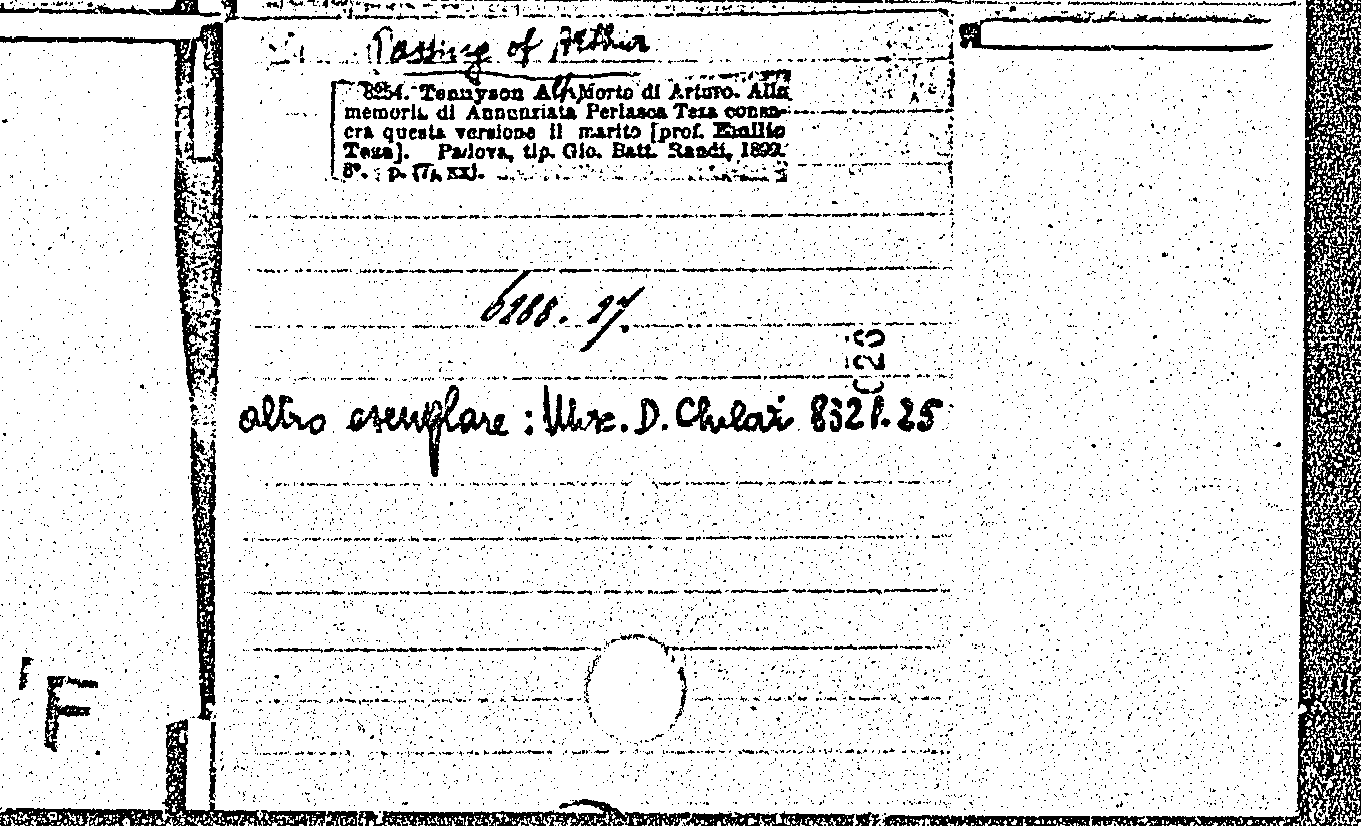 Passing of Arthur
8254. Tennyson Alf. Morte di Arturo. Alla
memoria di Annunziata Perlasca Teza consa-
cra questa versione il marito [prof. Emilio
Teza]. Padova, tip. Gio. Batt. Randi, 1892.
8°. : p. (7), xx).
6288. 27.
023
altro esemplare : Misc. D. Chilovi 8321.25
F